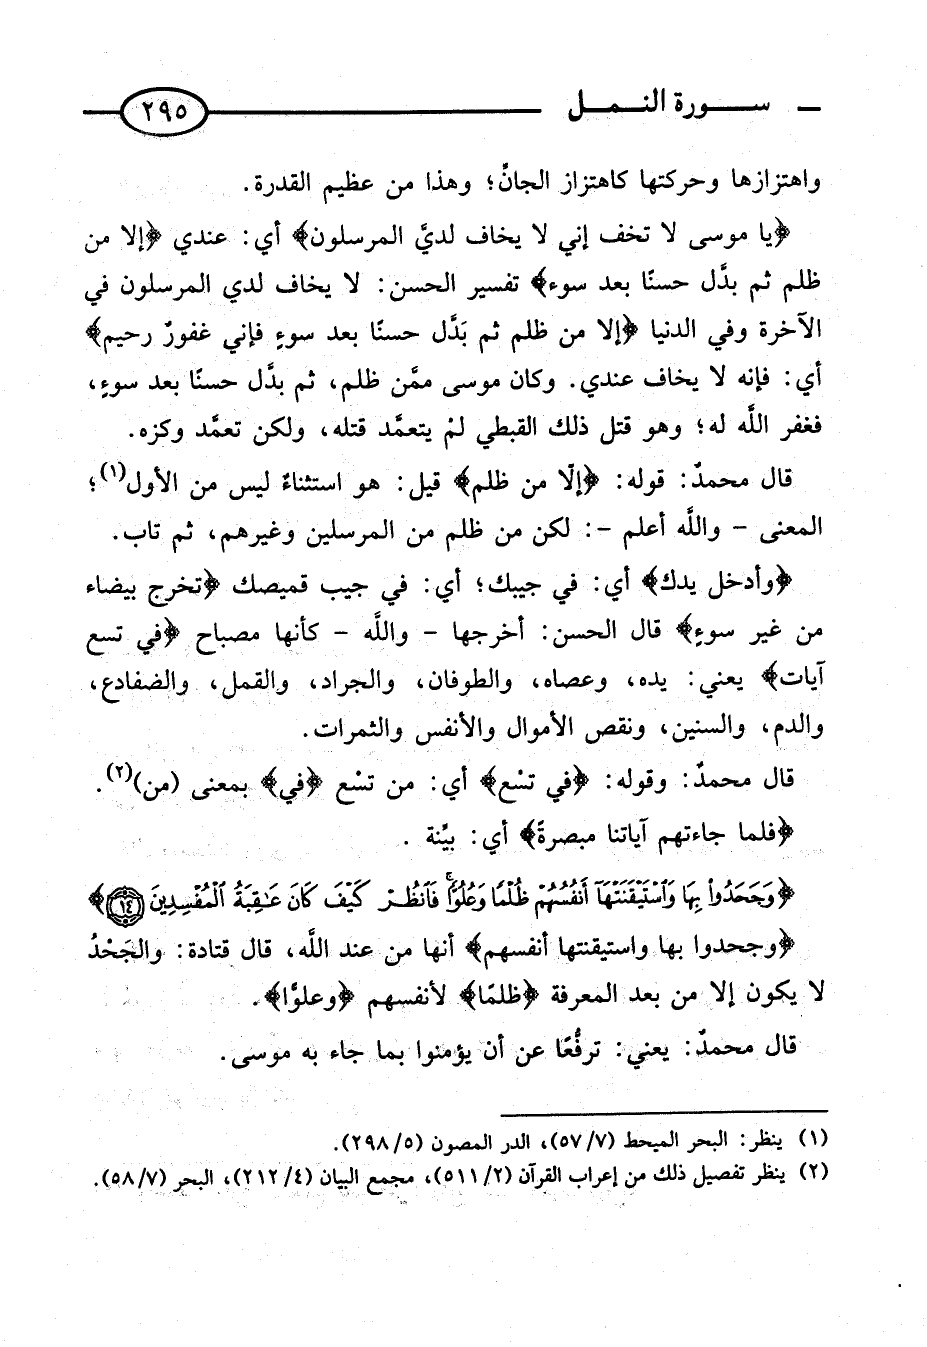 سـورة النـمـل ٢٩٥
واهتزازها وحركتها كاهتزاز الجانِّ؛ وهذا من عظيم القدرة.
﴿يا موسى لا تخف إني لا يخاف لديَّ المرسلون﴾ أي: عندي ﴿إلا من
ظلم ثم بدَّل حسنًا بعد سوء﴾ تفسير الحسن: لا يخاف لدي المرسلون في
الآخرة وفي الدنيا ﴿إلا من ظلم ثم بَدَّل حسنًا بعد سوءٍ فإني غفورٌ رحيم﴾
أي: فإنه لا يخاف عندي. وكان موسى ممَّن ظلم، ثم بدَّل حسنًا بعد سوءٍ،
فغفر اللَّه له؛ وهو قتل ذلك القبطي لمْ يتعمَّد قتله، ولكن تعمَّد وكزه.
قال محمدٌ: قوله: ﴿إلّا من ظلم﴾ قيل: هو استثناءٌ ليس من الأول(١)؛
المعنى - واللَّه أعلم -: لكن من ظلم من المرسلين وغيرهم، ثم تاب.
﴿وأدخل يدك﴾ أي: في جيبك؛ أي: في جيب قميصك ﴿تخرج بيضاء
من غير سوءٍ﴾ قال الحسن: أخرجها - واللَّه - كأنها مصباح ﴿في تسع
آيات﴾ يعني: يده، وعصاه، والطوفان، والجراد، والقمل، والضفادع،
والدم، والسنين، ونقص الأموال والأنفس والثمرات.
قال محمدٌ: وقوله: ﴿في تسْع﴾ أي: من تسْع ﴿في﴾ بمعنى (من)(٢).
﴿فلما جاءتهم آياتنا مبصرةً﴾ أي: بيِّنة .
﴿وَجَحَدُواْ بِهَا وَٱسْتَيْقَنَتْهَآ أَنفُسُهُمْ ظُلْمًا وَعُلُوًّاۚ فَٱنظُرْ كَيْفَ كَانَ عَٰقِبَةُ ٱلْمُفْسِدِينَ ١٤﴾
﴿وجحدوا بها واستيقنتها أنفسهم﴾ أنها من عند اللَّه، قال قتادة: والجَحْدُ
لا يكون إلا من بعد المعرفة ﴿ظلمًا﴾ لأنفسهم ﴿وعلوًّا﴾.
قال محمدٌ: يعني: ترفُّعًا عن أن يؤمنوا بما جاء به موسى.
(١) ينظر: البحر المحيط (٥٧/٧)، الدر المصون (٢٩٨/٥).
(٢) ينظر تفصيل ذلك من إعراب القرآن (٥١١/٢)، مجمع البيان (٢١٢/٤)، البحر (٥٨/٧).